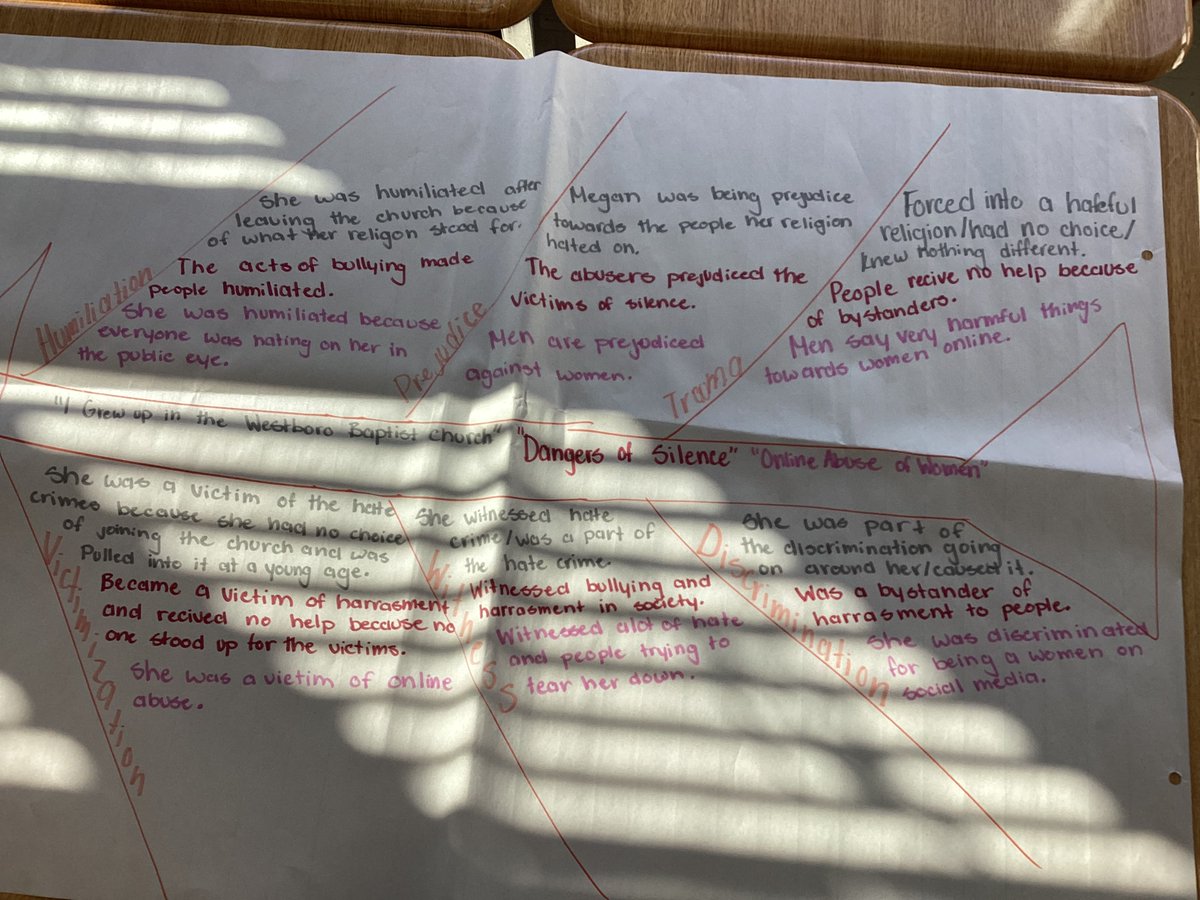 Humiliation
She was humiliated after
leaving the church because
of what her religon stood for.
The acts of bullying made
people humiliated.
She was humiliated because
everyone was hating on her in
the public eye.
Prejudice
Megan was being prejudice
towards the people her religion
hated on.
The abusers prejudiced the
victims of silence.
Men are prejudiced
against women.
Trama
Forced into a hateful
religion/had no choice/
knew nothing different.
People recive no help because
of bystanders.
Men say very harmful things
towards women online.
"I Grew up in the Westboro Baptist church" "Dangers of Silence" "Online Abuse of Women"
Victimization
She was a victim of the hate
crimes because she had no choice
of joining the church and was
Pulled into it at a young age.
Became a victim of harrasment
and recived no help because no
one stood up for the victims.
She was a victim of online
abuse.
Witness
She witnessed hate
crime/was a part of
the hate crime.
Witnessed bullying and
harrasment in society.
Witnessed alot of hate
and people trying to
tear her down.
Discrimination
She was part of
the discrimination going
on around her/caused it.
Was a bystander of
harrasment to people.
She was discriminated
for being a women on
social media.